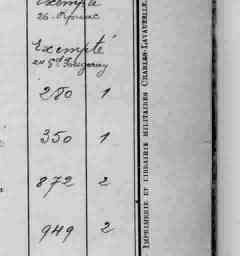 Exempté
26
Exempté
280 1
350 1
872 2
949 2
IMPRIMERIE ET LIBRAIRIE MILITAIRES CHARLES-LAVAUZELLE